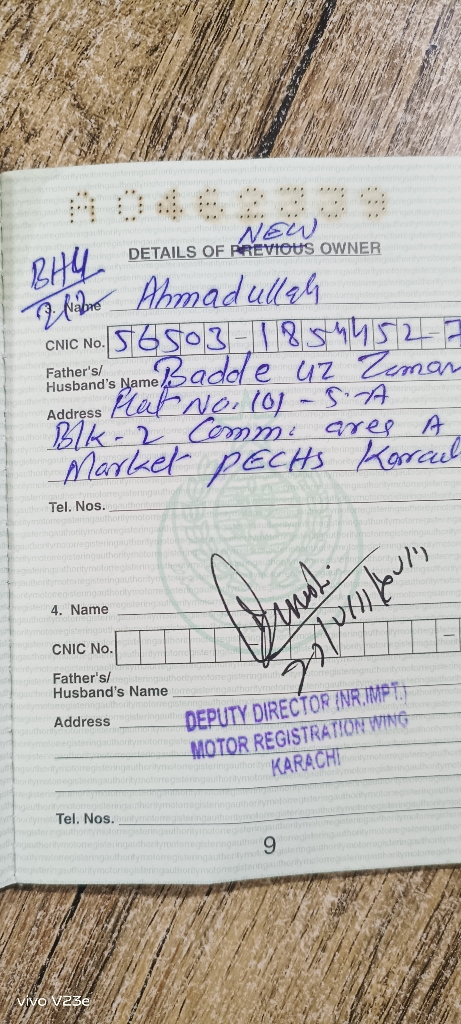 A0462339
NEW
DETAILS OF PREVIOUS OWNER
BH4
212
3. Name Ahmadullah
CNIC No. 56503-1854452-7
Father's/
Husband's Name Badde uz Zaman
Address Plat No. 101 - S-A
Blk-2 Comm: area A
Market PECHS
Tel. Nos.
4. Name
CNIC No. -
Father's/
Husband's Name
Address
DEPUTY DIRECTOR (NR.IMPT.)
MOTOR REGISTRATION WING
KARACHI
Tel. Nos.
9
vivo V23e